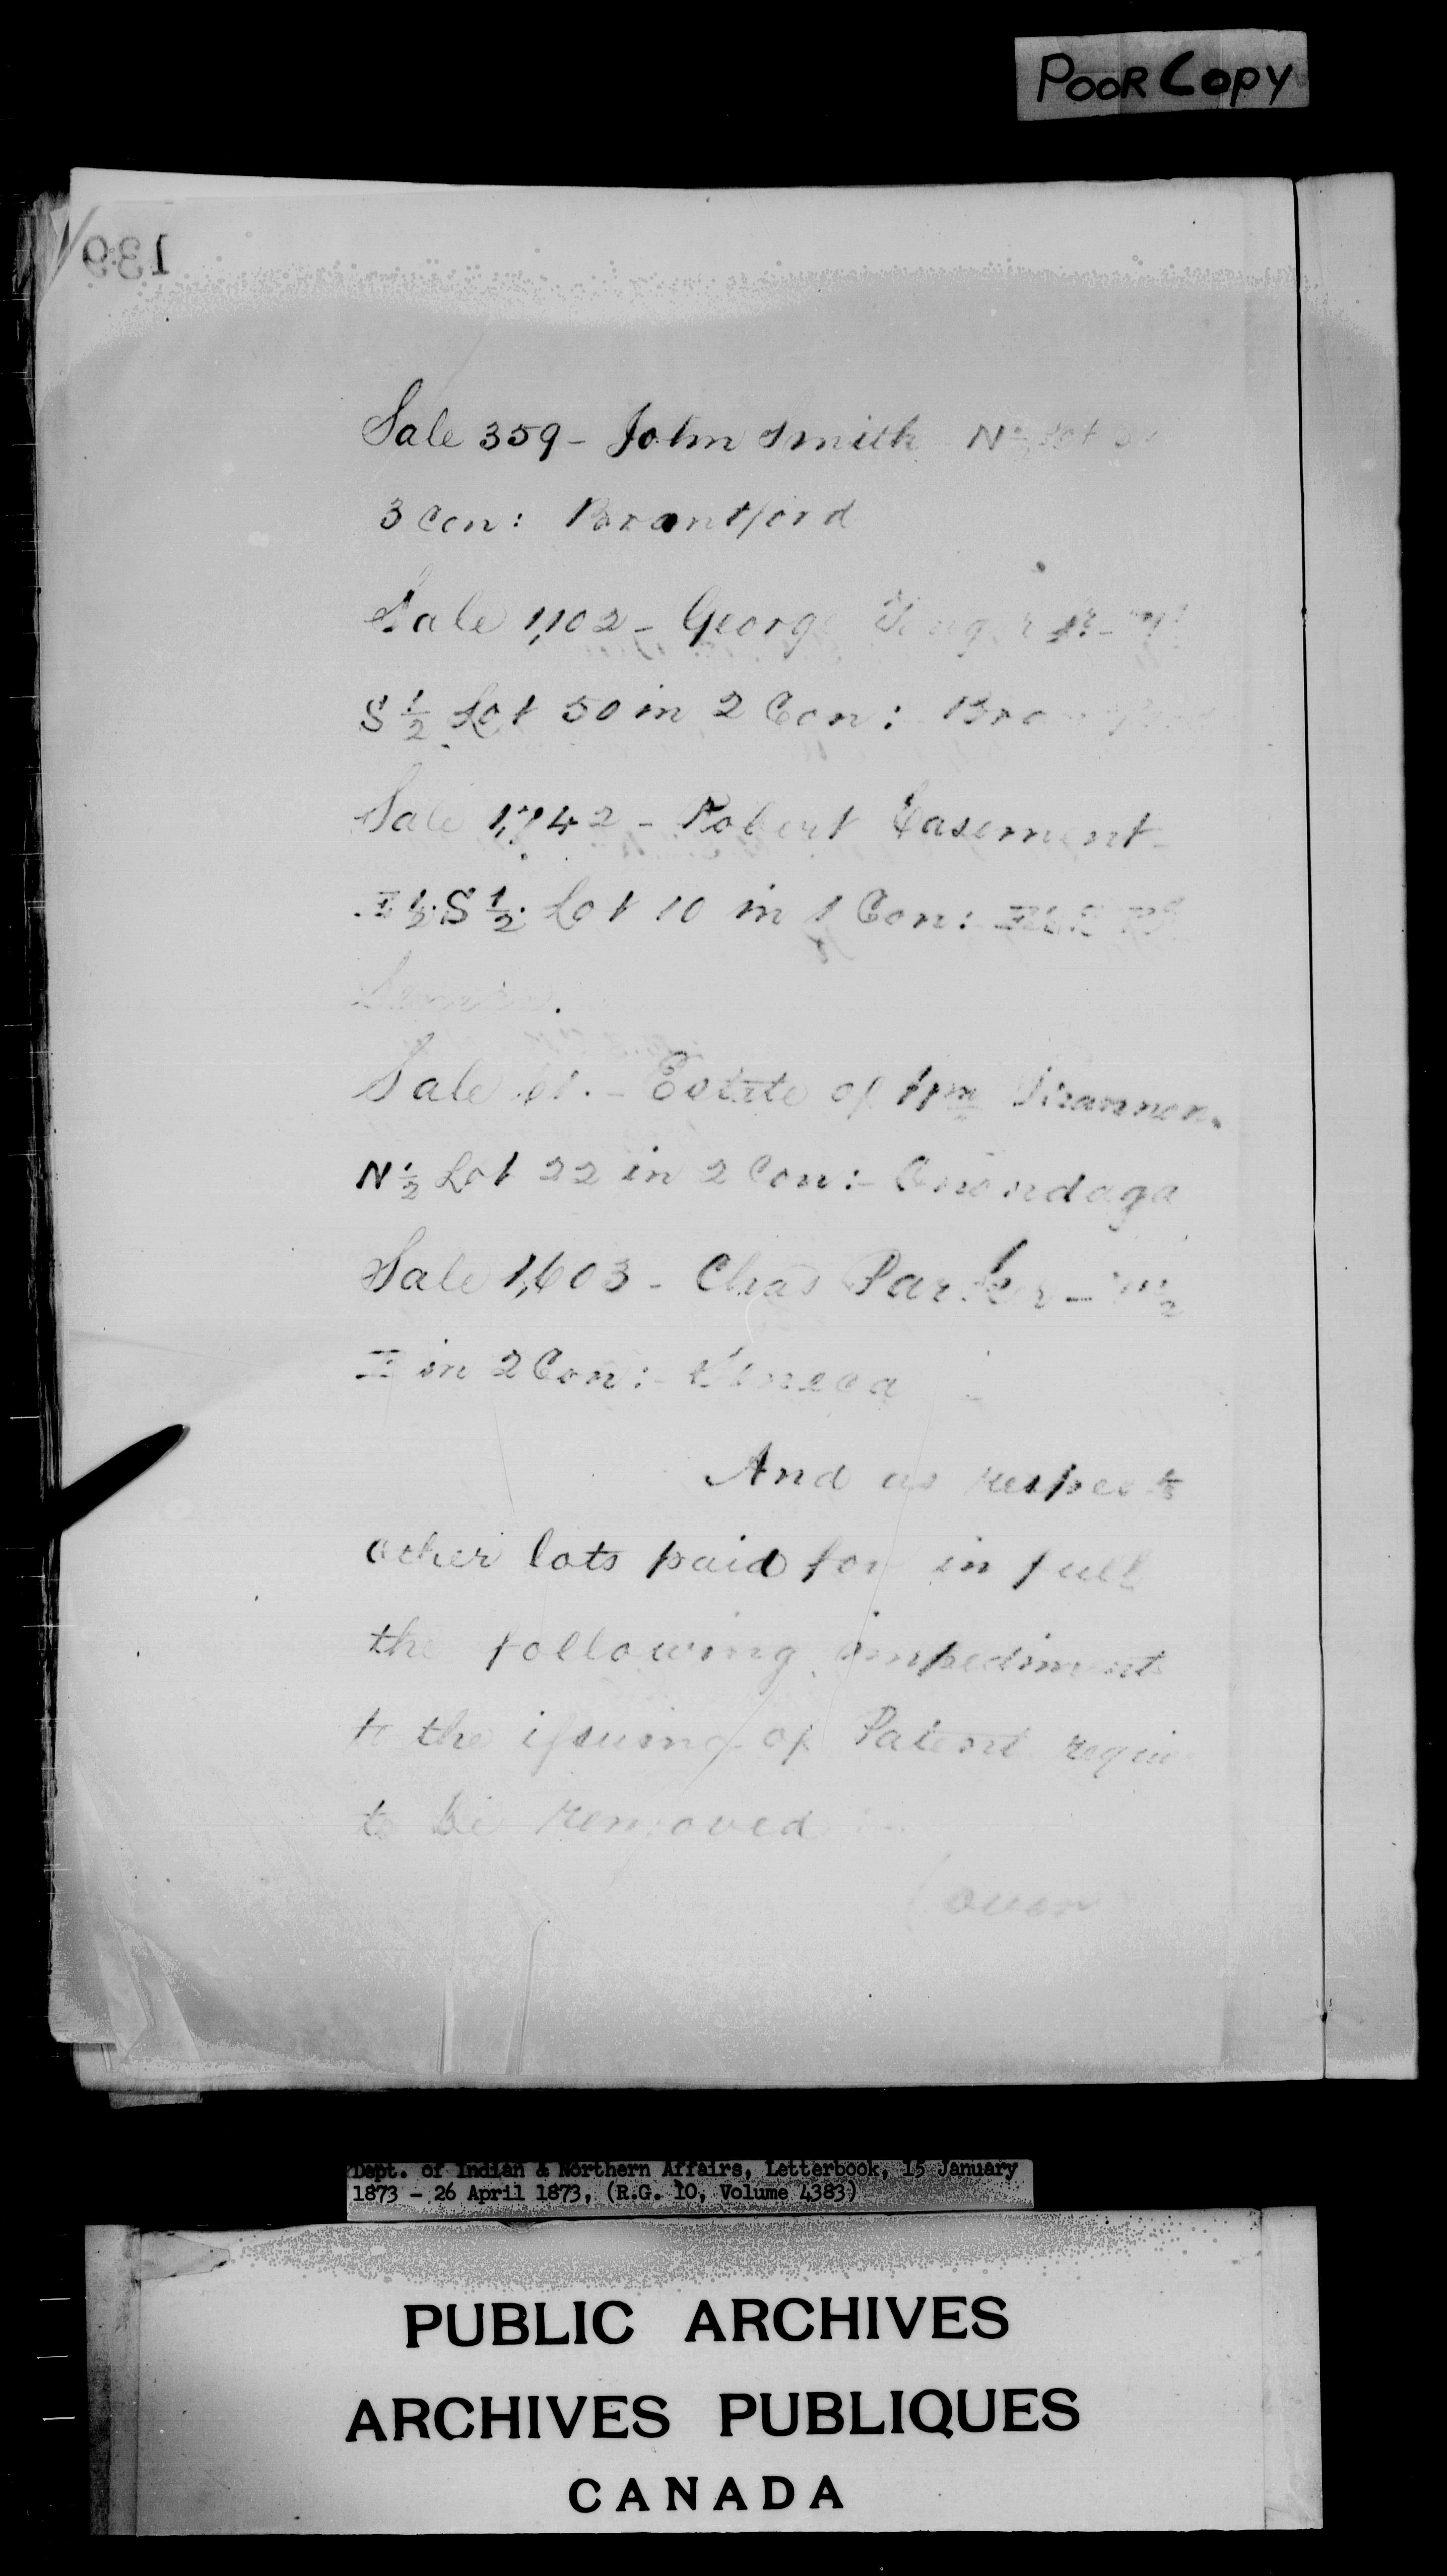 POOR COPY
139
Sale 359 - John Smith N ½ Lot
3 Con: Brantford
Sale 1,102 - George
S ½ Lot 50 in 2 Con:
Sale - Robert Easement -
½ S ½ Lot 10 in 1 Con:
Sale 61. - Estate of Wm
N ½ Lot 22 in 2 Con: - Onondaga
Sale 1,603 - Chas Parker - ½
in 2 Con: - Seneca
And as respects
other lots paid for in full
the following impediments
to the issuing of Patent
to be removed : -
(over
Dept. of Indian & Northern Affairs, Letterbook, 15 January
1873 - 26 April 1873, (R.G. 10, Volume 4383)
PUBLIC ARCHIVES
ARCHIVES PUBLIQUES
CANADA